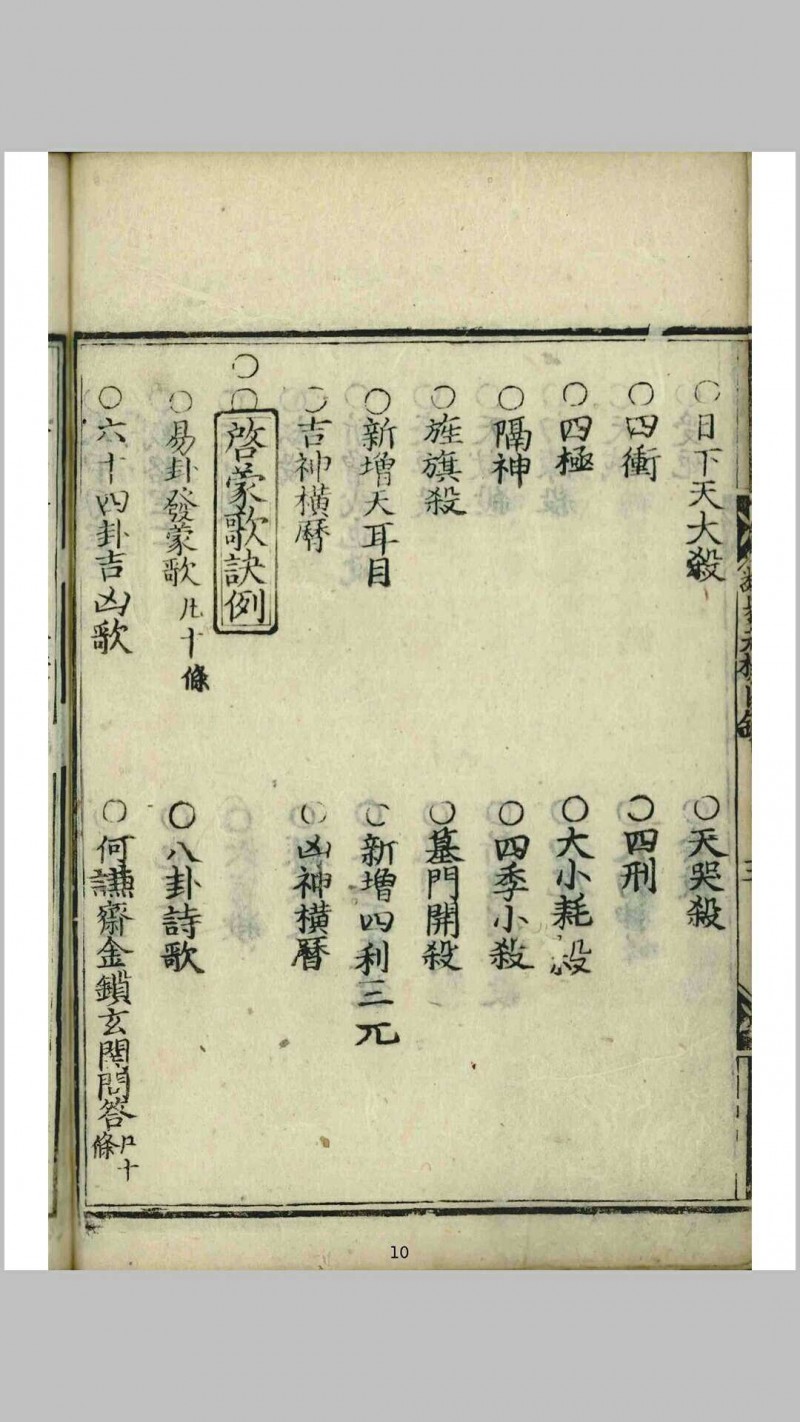 ○日下天大殺 ○天哭殺
○四衝 ○四刑
○四極 ○大小耗殺
○隔神 ○四季小殺
○旌旗殺 ○墓門開殺
○新增天耳目 ○新增四利三元
○吉神橫曆 ○凶神橫曆
○○啓蒙歌訣例
○易卦發蒙歌 凡十條 ○八卦詩歌
○六十四卦吉凶歌 ○何謙齋金鎖玄関問答 十條
10